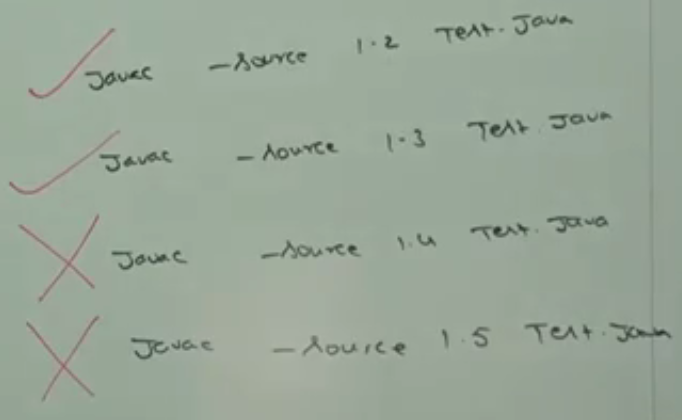 Javac -source 1.2 Test.Java
Javac -source 1.3 Test.Java
Javac -source 1.4 Test.Java
Javac -source 1.5 Test.Java